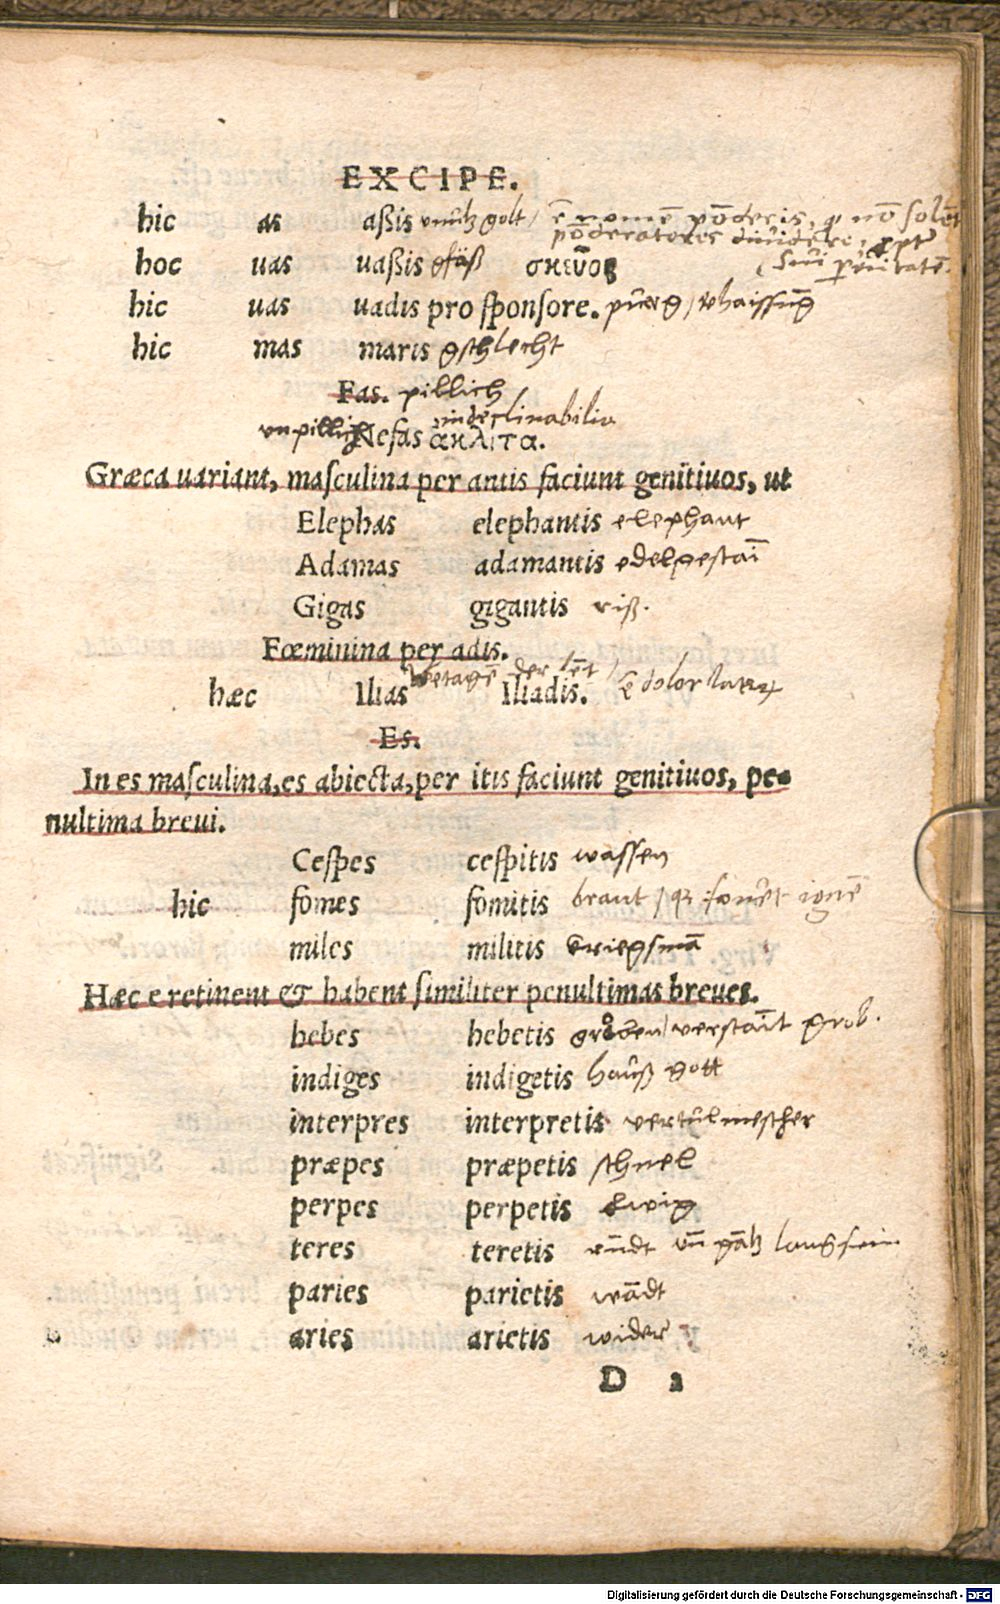 EXCIPE.
hic as aßis golt / ē nomē pōderis, nō solēt
pōderatores
hoc uas uaßis gfäß σκεῦος
hic uas uadis pro ſponſore. pürg /
hic mas maris gſchlecht
Fas. pillich
indeclinabilia
vnpillich Nefas ἄκλιτα.
Græca uariant, maſculina per antis faciunt genitiuos, ut
Elephas elephantis elephant
Adamas adamantis edelgestaī
Gigas gigantis riß.
Fœminina per adis.
hæc Ilias Iliadis. ē dolor
Es.
In es maſculina, es abiecta, per itis faciunt genitiuos, pe-
nultima breui.
Ceſpes ceſpitis wassen
hic fomes fomitis ignē
miles militis kriegsmā
Hæc e retinent & habent ſimiliter penultimas breues.
hebes hebetis grob.
indiges indigetis hauß gott
interpres interpretis vertulmescher
præpes præpetis schnel
perpes perpetis ewig
teres teretis
paries parietis wādt
aries arietis wider
D 2
Digitalisierung gefördert durch die Deutsche Forschungsgemeinschaft - DFG